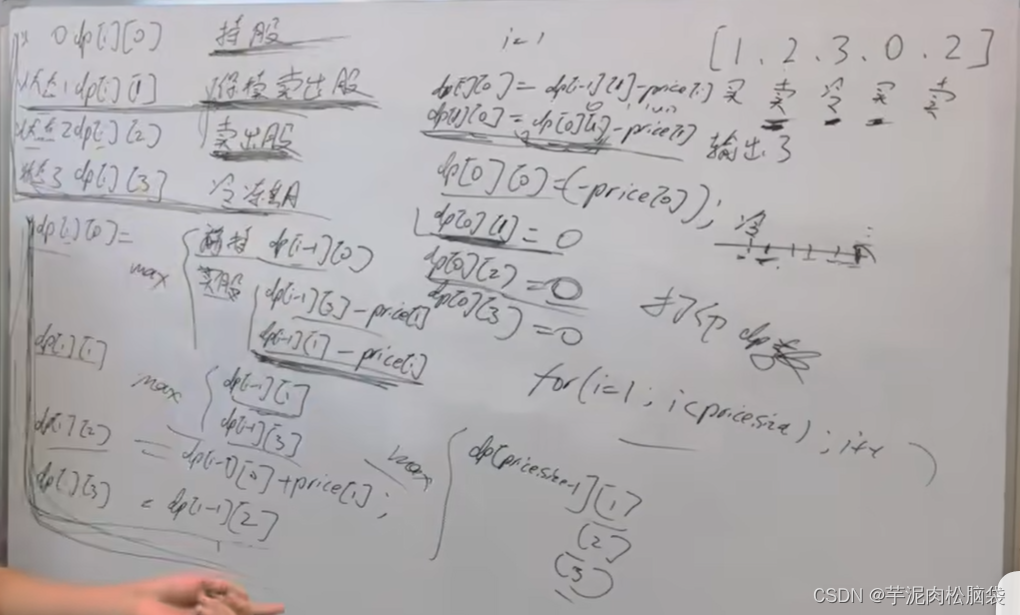 0 dp[i][0] 持股
状态1 dp[i][1] 保持卖出股
状态2 dp[i][2] 卖出股
状态3 dp[i][3] 冷冻期
dp[i][0] =
max
保持 dp[i-1][0]
买股
dp[i-1][3] - price[i]
dp[i-1][1] - price[i]
dp[i][1]
max
dp[i-1][1]
dp[i-1][3]
dp[i][2] = dp[i-1][0] + price[i];
dp[i][3] = dp[i-1][2]
i=1
dp[i][0] = dp[i-1][1] - price[i]
dp[1][0] = dp[0][1] - price[1]
dp[0][0] = (-price[0]);
dp[0][1] = 0
dp[0][2] = 0
dp[0][3] = 0
[1, 2, 3, 0, 2]
买 卖 冷 买 卖
输出 3
冷
打印 dp
for(i=1; i<price.size); i++)
max
dp[price.size-1][1]
[2]
[3]
CSDN @芋泥肉松脑袋